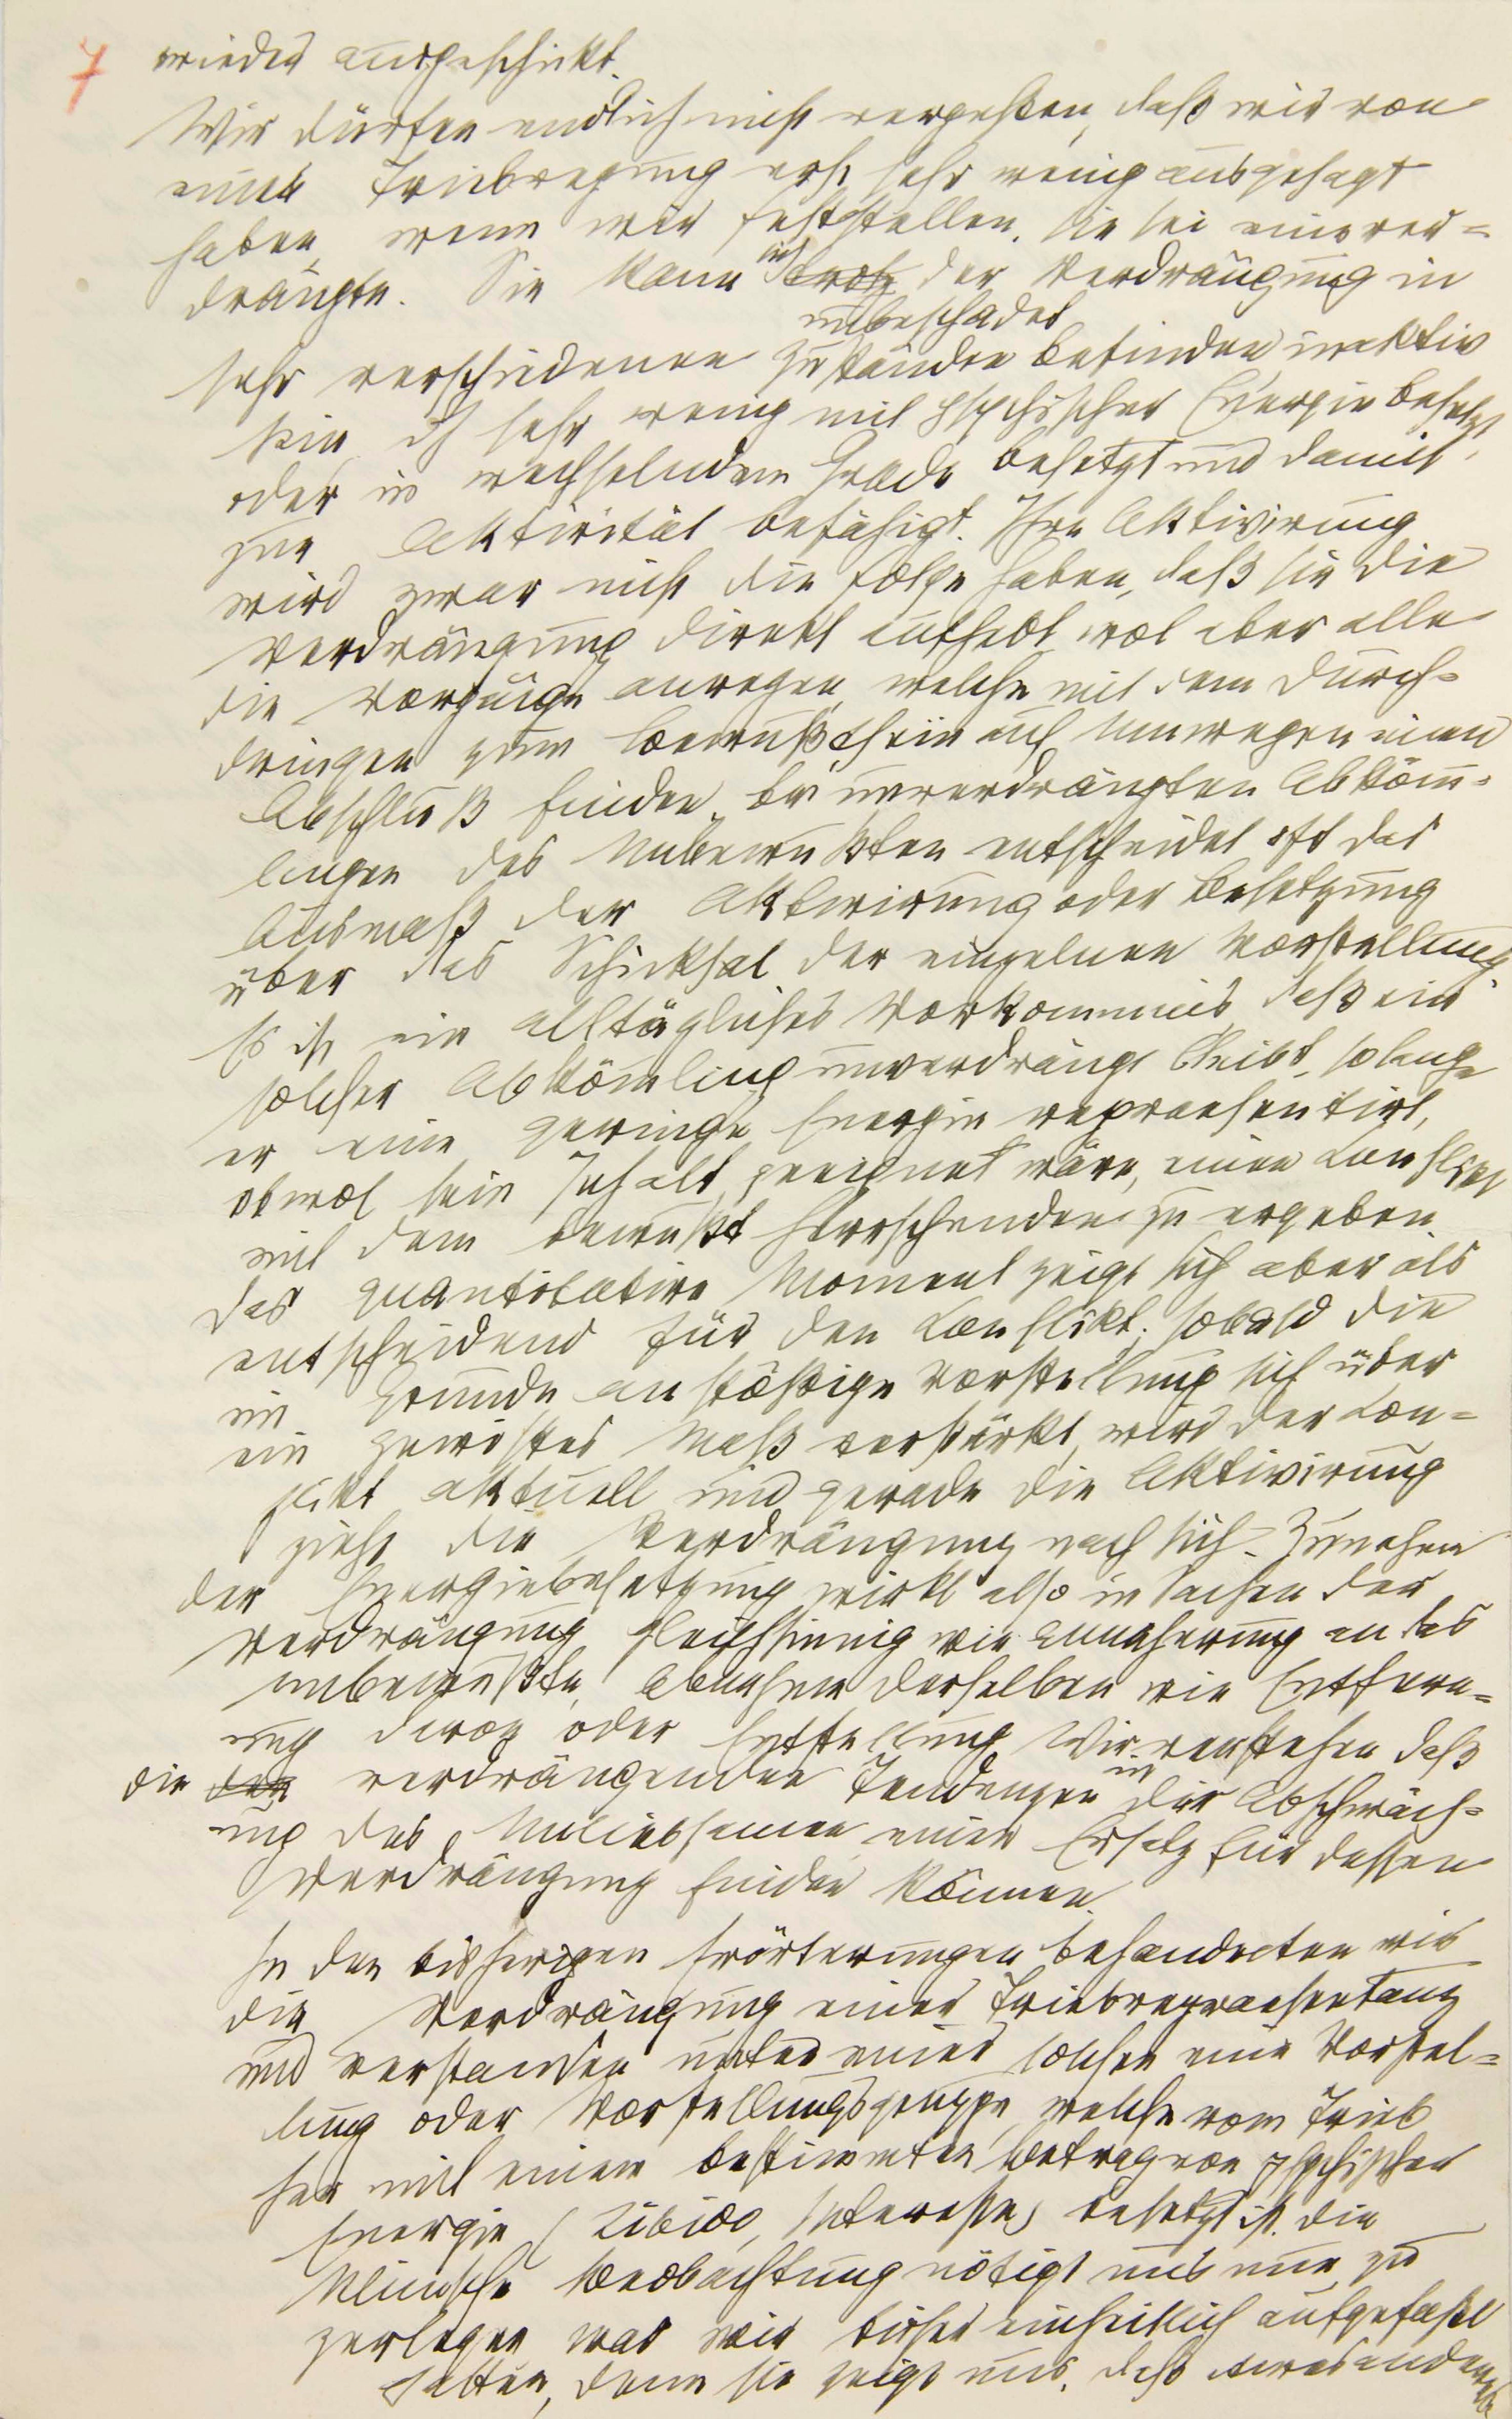 7 wieder ausgeschickt.
Wir dürfen endlich nicht vergeßen, daß wir von
einer Triebregung erst sehr wenig ausgesagt
haben, wenn wir feststellen, sie sei eine ver=
drängte. Sie kann sich trotz der Verdrängung in
unbeschadet
sehr verschiedenen Zuständen befinden, inaktiv
sein, dh sehr wenig mit psychischer Energie besetzt,
oder in wechselndem Grade besetzt und damit
zur Aktivität befähigt. Ihre Aktivirung
wird zwar nicht die Folge haben, daß sie die
Verdrängung direkt aufhebt, wol aber alle
die Vorgänge anregen, welche mit dem Durch=
dringen zum Bewußtsein auf Umwegen einen
Abschluß finden. Bei unverdrängten Abköm=
lingen des Unbewußten entscheidet oft das
Ausmaß der Aktivirung oder Besetzung
über das Schicksal der einzelnen Vorstellung.
Es ist ein alltägliches Vorkommnis, daß ein
solcher Abkömling unverdrängt bleibt, solange
er eine geringe Energie repraesentirt,
obwol sein Inhalt geeignet wäre, einen Konflikt
mit dem bewußt Herrschenden zu ergeben
Das quantitative Moment zeigt sich aber als
entscheidend für den Konflikt; sobald die
im Grunde anstößige Vorstellung sich über
ein gewisses Maß verstärkt, wird der Kon=
flikt aktuell und gerade die Aktivirung
zieht die Verdrängung nach sich. Zunahme
der Energiebesetzung wirkt also in Sachen der
Verdrängung gleichsinnig wie Annäherung an das
Unbewußte, Abnahme derselben wie Entfern=
ung davon oder Entstellung. Wir verstehen, daß
die den verdrängenden Tendenzen in der Abschwäch=
ung des Unliebsamen einen Ersatz für dessen
Verdrängung finden können.
In den bisherigen Erörterungen behandelten wir
die Verdrängung einer Triebrepraesentanz
und verstanden unter einer solchen eine Vorstel=
lung oder Vorstellungsgruppe, welche vom Trieb
her mit einem bestimmten Betrag von psychischer
Energie (Libido, Interesse) besetzt ist. Die
klinische Beobachtung nötigt uns nun zu
zerlegen was wir bisher einheitlich aufgefaßt
hatten, denn sie zeigt uns, daß etwas anderes